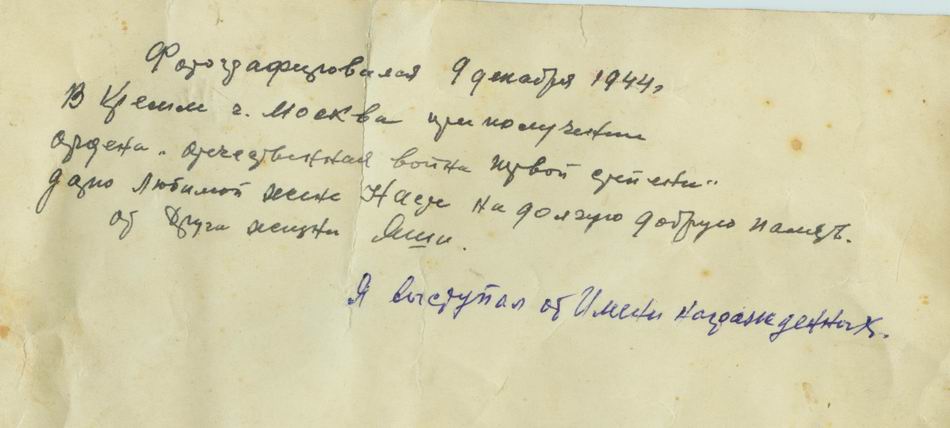 Фотографировался 9 декабря 1944г
В Кремле г. Москва при получении
ордена „отечественная война первой степени"
дарю Любимой жене Наде на долгую добрую память.
от Друга жизни Яши.
Я выступал от Имени награжденных.